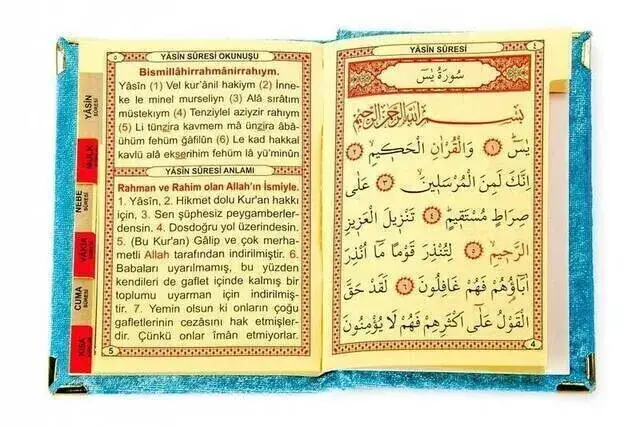 ٥
YÂSİN SÛRESİ OKUNUŞU
Bismillâhirrahmânirrahıym.
Yâsîn (1) Vel kur'ânil hakiym (2) İnne-
ke le minel murseliyn (3) Alâ sırâtım
müstekıym (4) Tenziylel aziyzir rahıym
(5) Li tünzira kavmem mâ ünzira âbâ-
ühüm fehüm ğâfilûn (6) Le kad hakkal
kavlü alâ ekserihim fehüm lâ yü'minûn
YÂSÎN SÛRESİ ANLAMI
Rahman ve Rahim olan Allah'ın İsmiyle.
1. Yâsîn, 2. Hikmet dolu Kur'an hakkı
için, 3. Sen şüphesiz peygamberler-
densin. 4. Dosdoğru yol üzerindesin.
5. (Bu Kur'an) Gâlip ve çok merha-
metli Allah tarafından indirilmiştir. 6.
Babaları uyarılmamış, bu yüzden
kendileri de gaflet içinde kalmış bir
toplumu uyarman için indirilmiş-
tir. 7. Yemin olsun ki onların çoğu
gafletlerinin cezasını hak etmişler-
dir. Çünkü onlar îmân etmiyorlar.
5
YÂSİN SÛRESİ
MÜLK
NEBE
SÛRESİ
VAKIA
CUMA
SÛRESİ
KISA
YÂSİN SÛRESİ
٤
سُورَةُ يٰسٓ
بِسْمِ اللّٰهِ الرَّحْمٰنِ الرَّحِيمِ
يٰسٓ ١ وَالْقُرْاٰنِ الْحَكِيمِ ٢
اِنَّكَ لَمِنَ الْمُرْسَلِينَ ٣ عَلٰى
صِرَاطٍ مُسْتَقِيمٍ ٤ تَنْزِيلَ الْعَزِيزِ
الرَّحِيمِ ٥ لِتُنْذِرَ قَوْمًا مَا اُنْذِرَ
اٰبَاؤُهُمْ فَهُمْ غَافِلُونَ ٦ لَقَدْ حَقَّ
الْقَوْلُ عَلٰى اَكْثَرِهِمْ فَهُمْ لَا يُؤْمِنُونَ
4